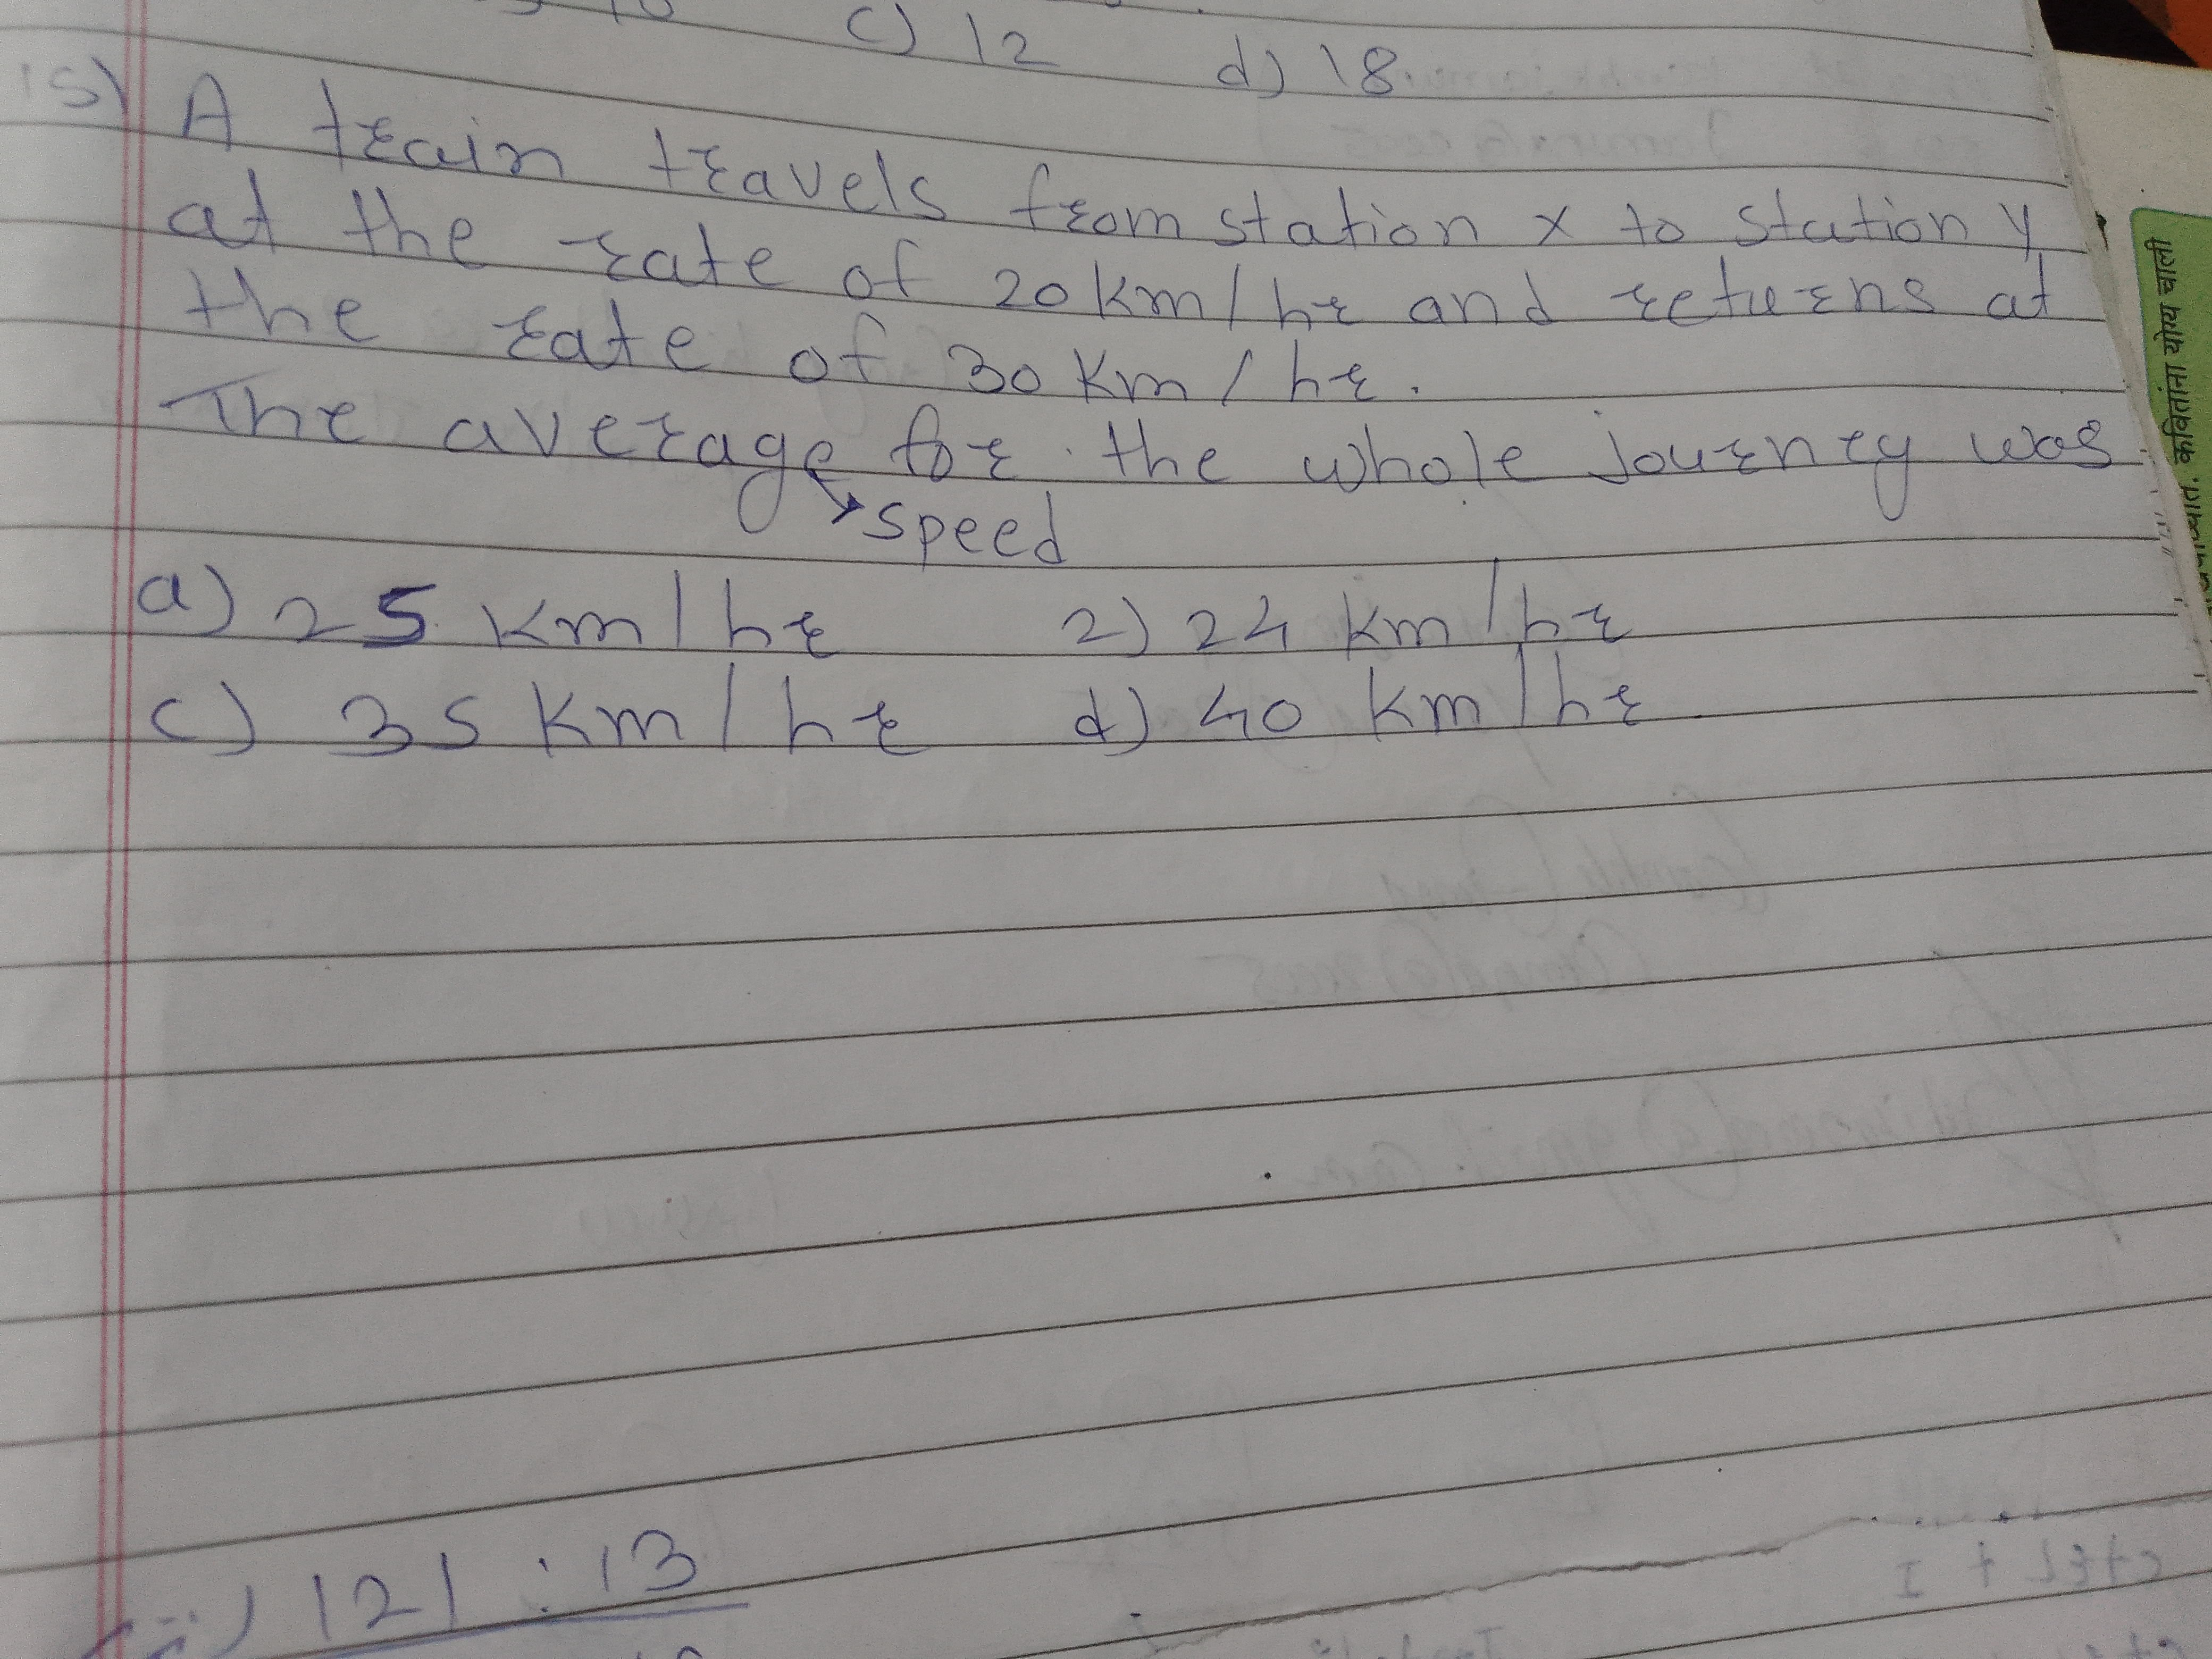 c) 12 d) 18
15) A train travels from station x to station y
at the rate of 20 km/hr and returns at
the rate of 30 km/hr.
The average for the whole journey was
speed
a) 25 km/hr 2) 24 km/hr
c) 35 km/hr d) 40 km/hr
121 : 13